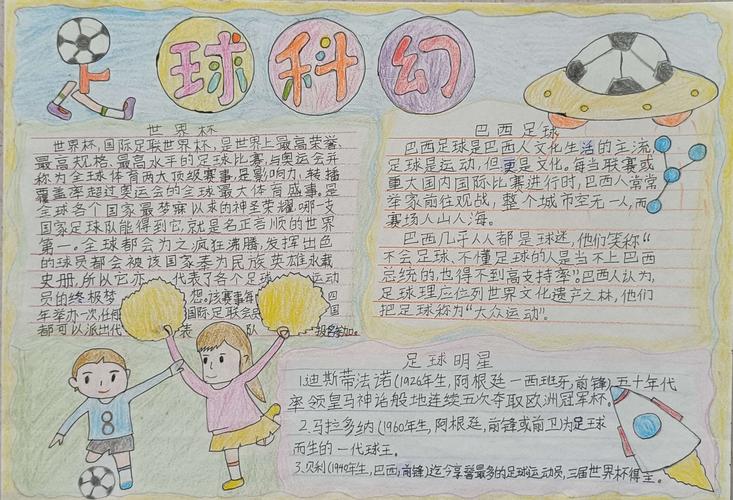 足球科幻
世界杯
世界杯,国际足联世界杯,是世界上最高荣誉、
最高规格、最高水平的足球比赛,与奥运会并
称为全球体育两大顶级赛事,是影响力、转播
覆盖率超过奥运会的全球最大体育盛事。是
全球各个国家最梦寐以求的神圣荣耀,哪一支
国家足球队能得到它,就是名正言顺的世界
第一。全球都会为之疯狂沸腾,发挥出色
的球员都会被该国家奉为民族英雄永载
史册,所以它亦代表了各个足球运动
员的终极梦想。该赛事每四
年举办一次,任何国际足联会员
都可以派出代表队报名参加。
巴西足球
巴西足球是巴西人文化生活的主流,
足球是运动,但更是文化。每当联赛或
重大国内国际比赛进行时,巴西人常常
举家前往观战,整个城市空无一人,而
赛场人山人海。
巴西几乎人人都是球迷,他们笑称“
不会足球、不懂足球的人是当不上巴西
总统的,也得不到高支持率”。巴西人认为,
足球理应位列世界文化遗产之林,他们
把足球称为“大众运动”。
足球明星
1.迪斯蒂法诺(1926年生,阿根廷—西班牙,前锋)五十年代
率领皇马神话般地连续五次夺取欧洲冠军杯。
2.马拉多纳(1960年生,阿根廷,前锋或前卫)为足球
而生的一代球王。
3.贝利(1940年生,巴西,前锋)迄今享誉最多的足球运动员,三届世界杯得主。
8